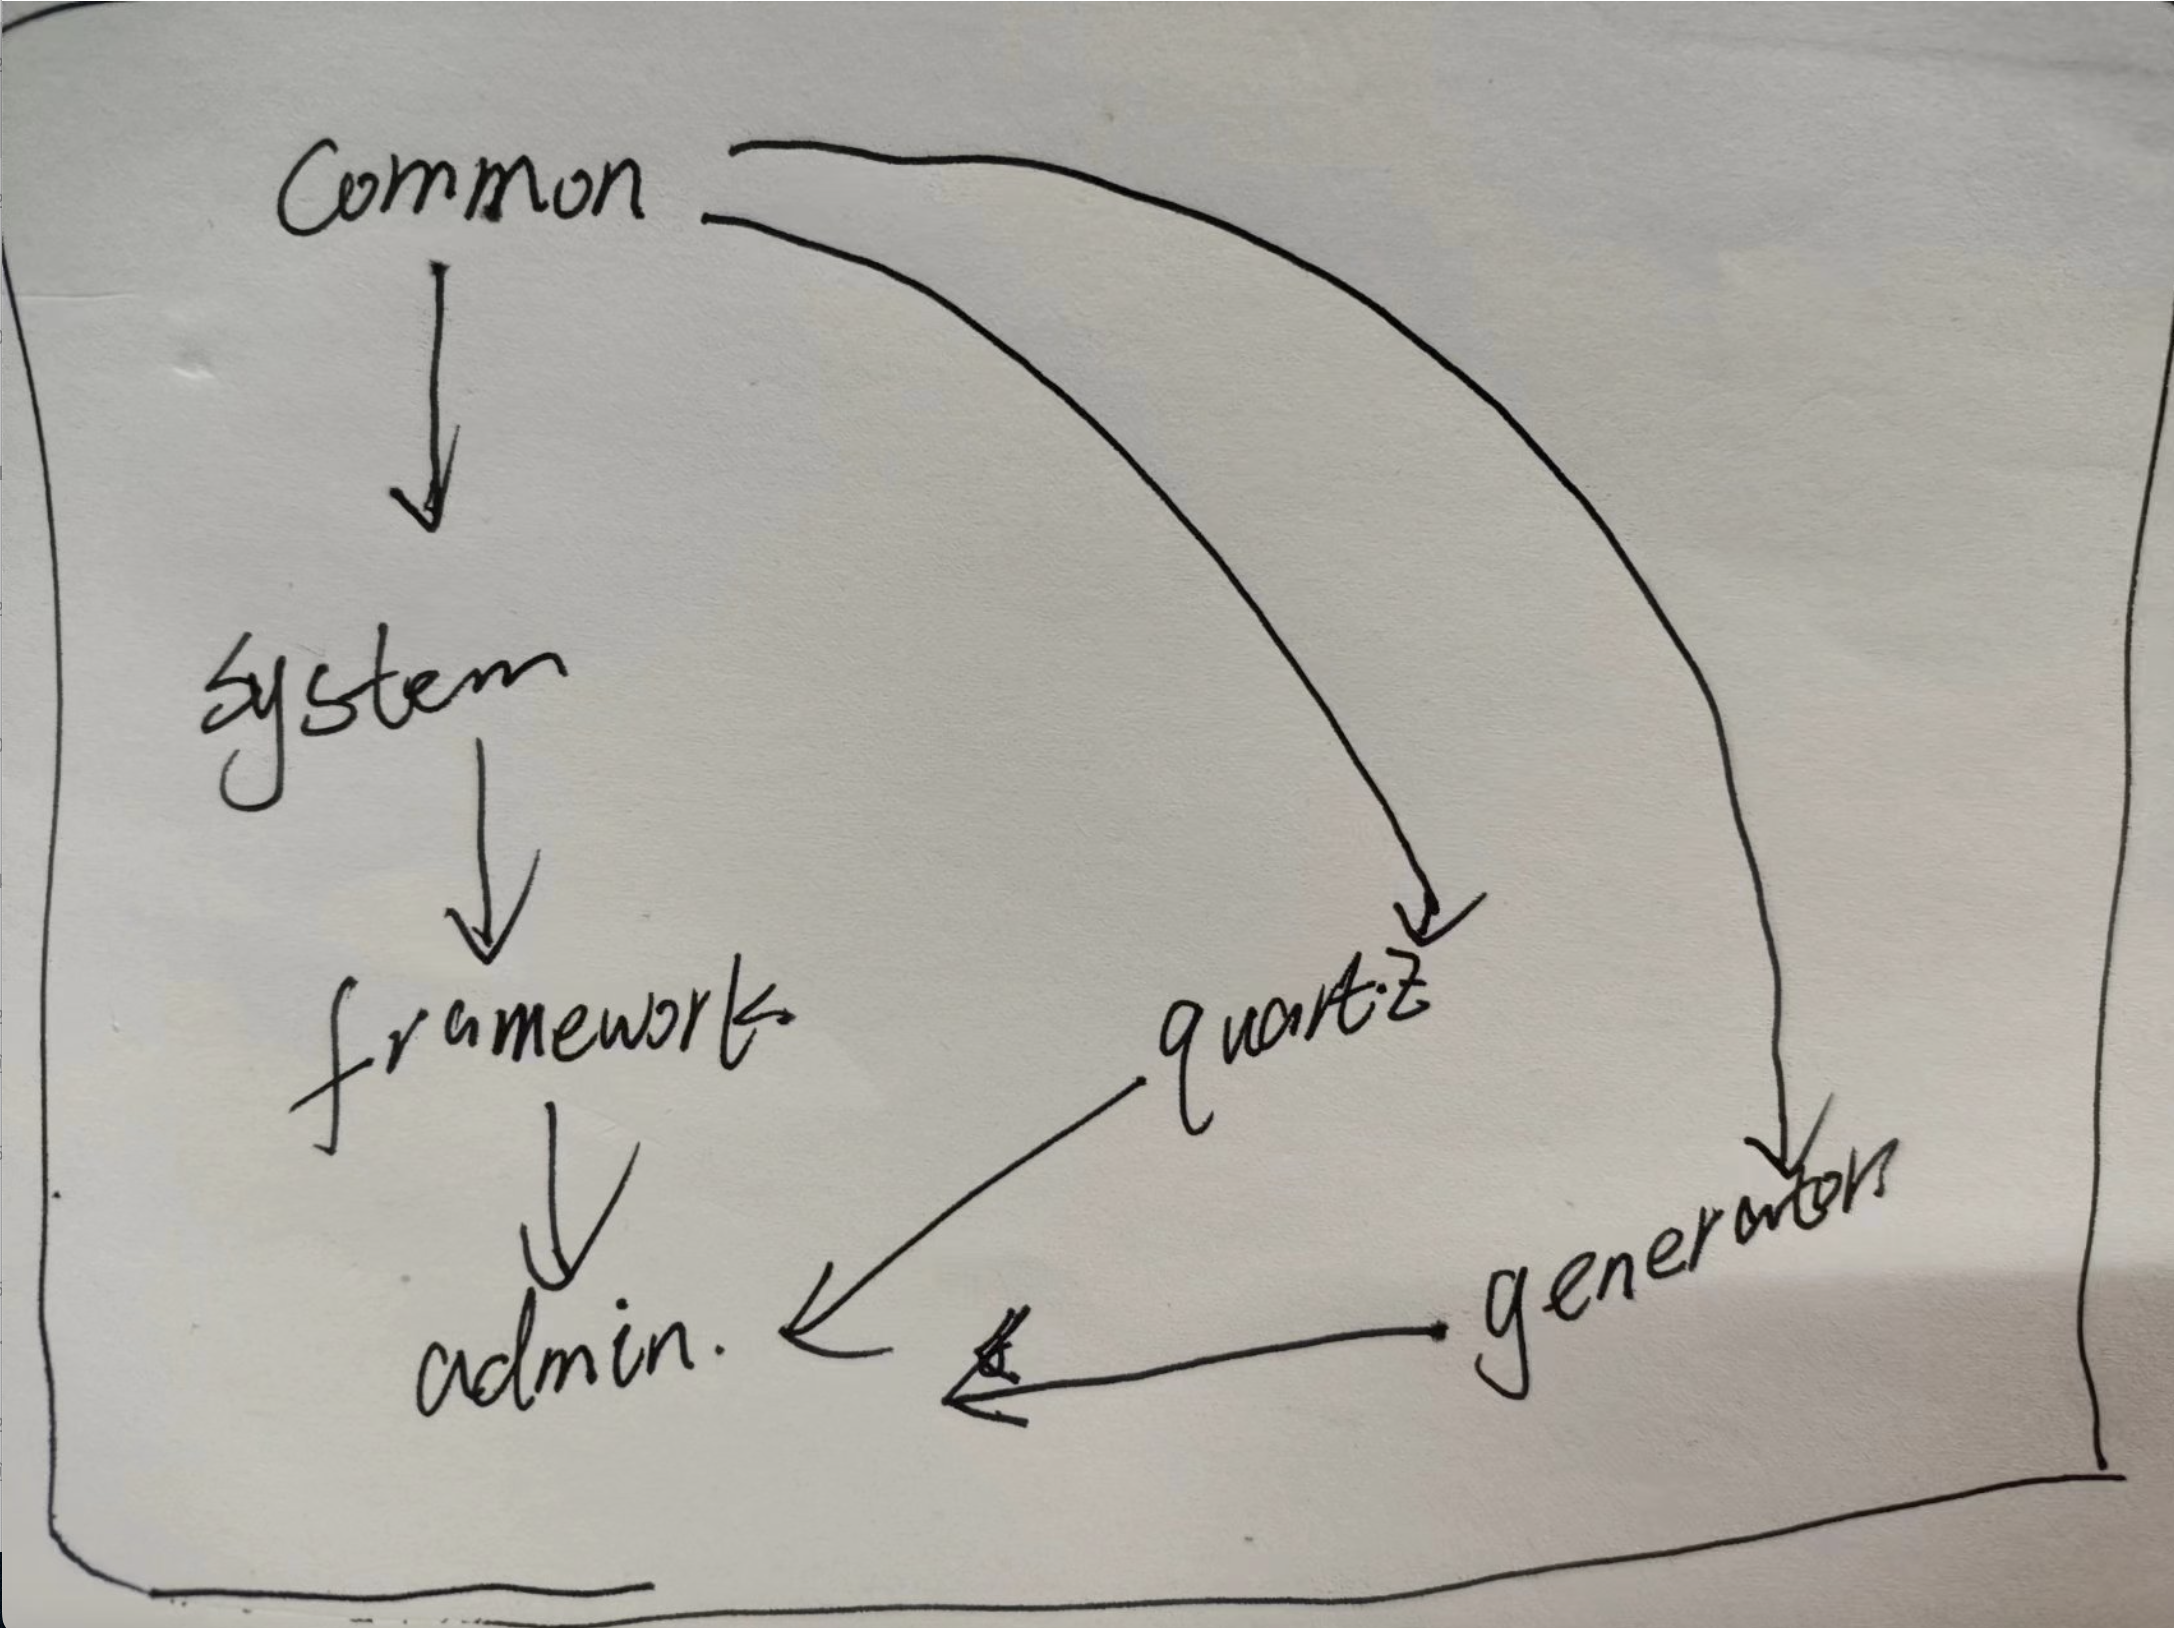 Common
system
framework
quartz
generator
admin.